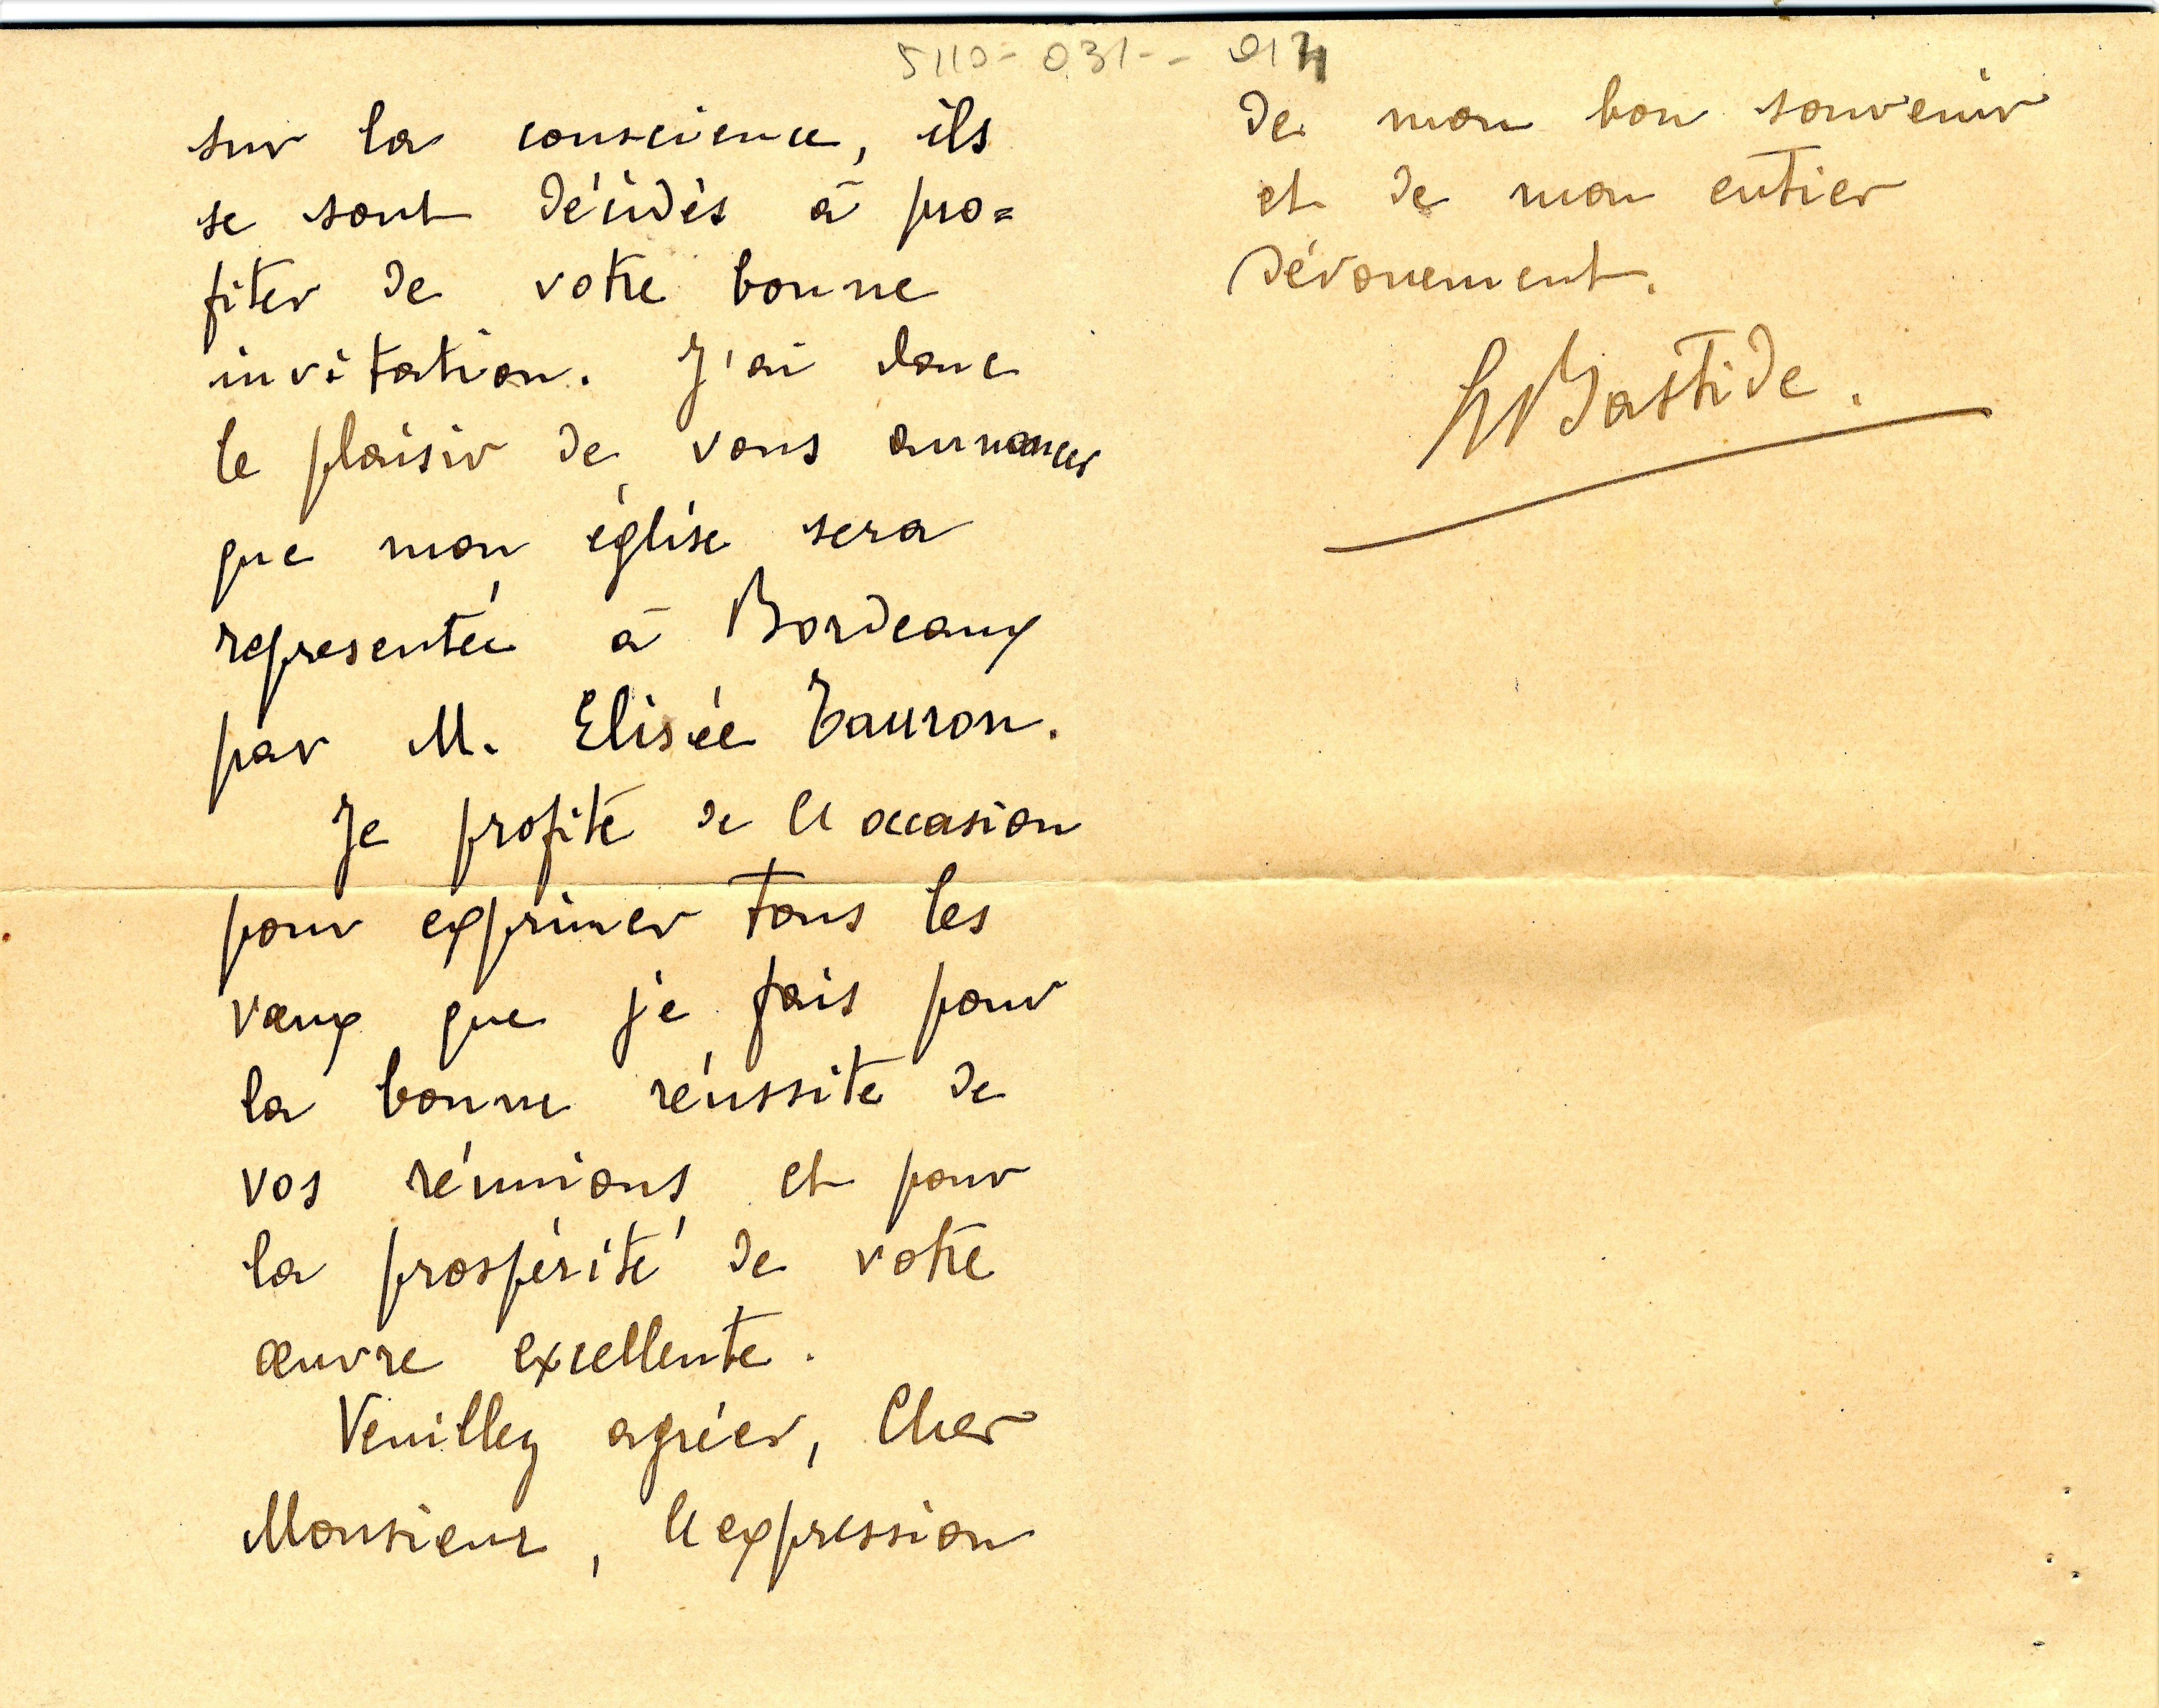 5110-031--014
sur la conscience, ils
se sont décidés à pro=
fiter de votre bonne
invitation. J'ai donc
le plaisir de vous annoncer
que mon église sera
representée à Bordeaux
par M. Elisée Tauron.
Je profite de l'occasion
pour exprimer tous les
vœux que je fais pour
la bonne réussite de
vos réunions et pour
la prospérité de votre
œuvre excellente.
Veuillez agréer, Cher
Monsieur, l'expression
de mon bon souvenir
et de mon entier
dévouement.
Bastide.